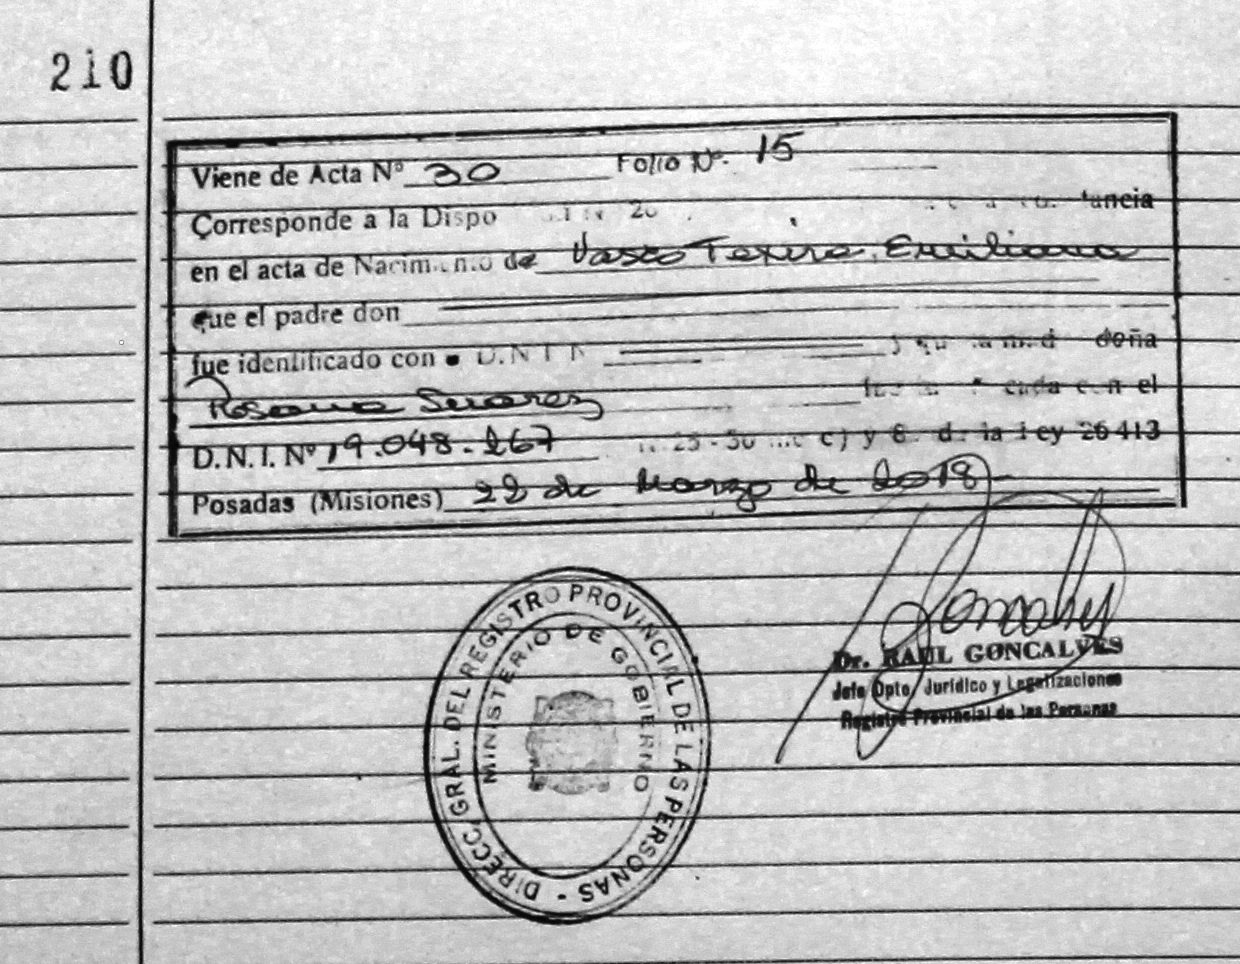 210
Viene de Acta Nº 30 Folio Nº. 15
Corresponde a la Dispo
en el acta de Nacimiento de Vasco Texira, Emiliano
que el padre don
fue identificado con D.N.I N doña
Rosana Suarez cada con el
D.N.I. Nº 19.048.267 c) y 6. de la Ley 26413
Posadas (Misiones) 22 de Marzo de 2018
Dr. RAUL GONCALVES
Jefe Dpto. Jurídico y Legalizaciones
Registro Provincial de las Personas
DIRECC. GRAL. DEL REGISTRO PROVINCIAL DE LAS PERSONAS -
MINISTERIO DE GOBIERNO